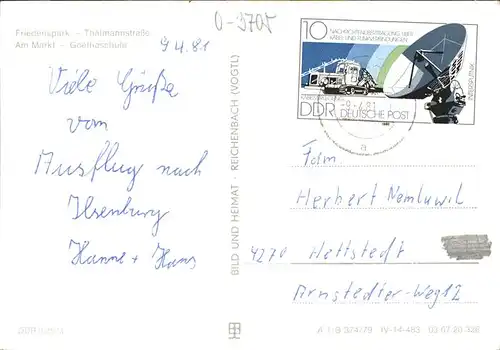 0-3705
Friedenspark - Thälmannstraße
Am Markt - Goetheschule
9 4.81
Viele Grüße
vom
Ausflug nach
Ilsenburg
Hanne + Hans
BILD UND HEIMAT · REICHENBACH (VOGTL)
10
NACHRICHTENÜBERTRAGUNG ÜBER
KABEL UND FUNKVERBINDUNGEN
INTERSPUTNIK
DDR DEUTSCHE POST
-9.-4.81
a
Fam.
Herbert
4270 Hettstedt
Arnstedter-Weg
A 1/B 374/79 IV-14-483 03 07 20 338